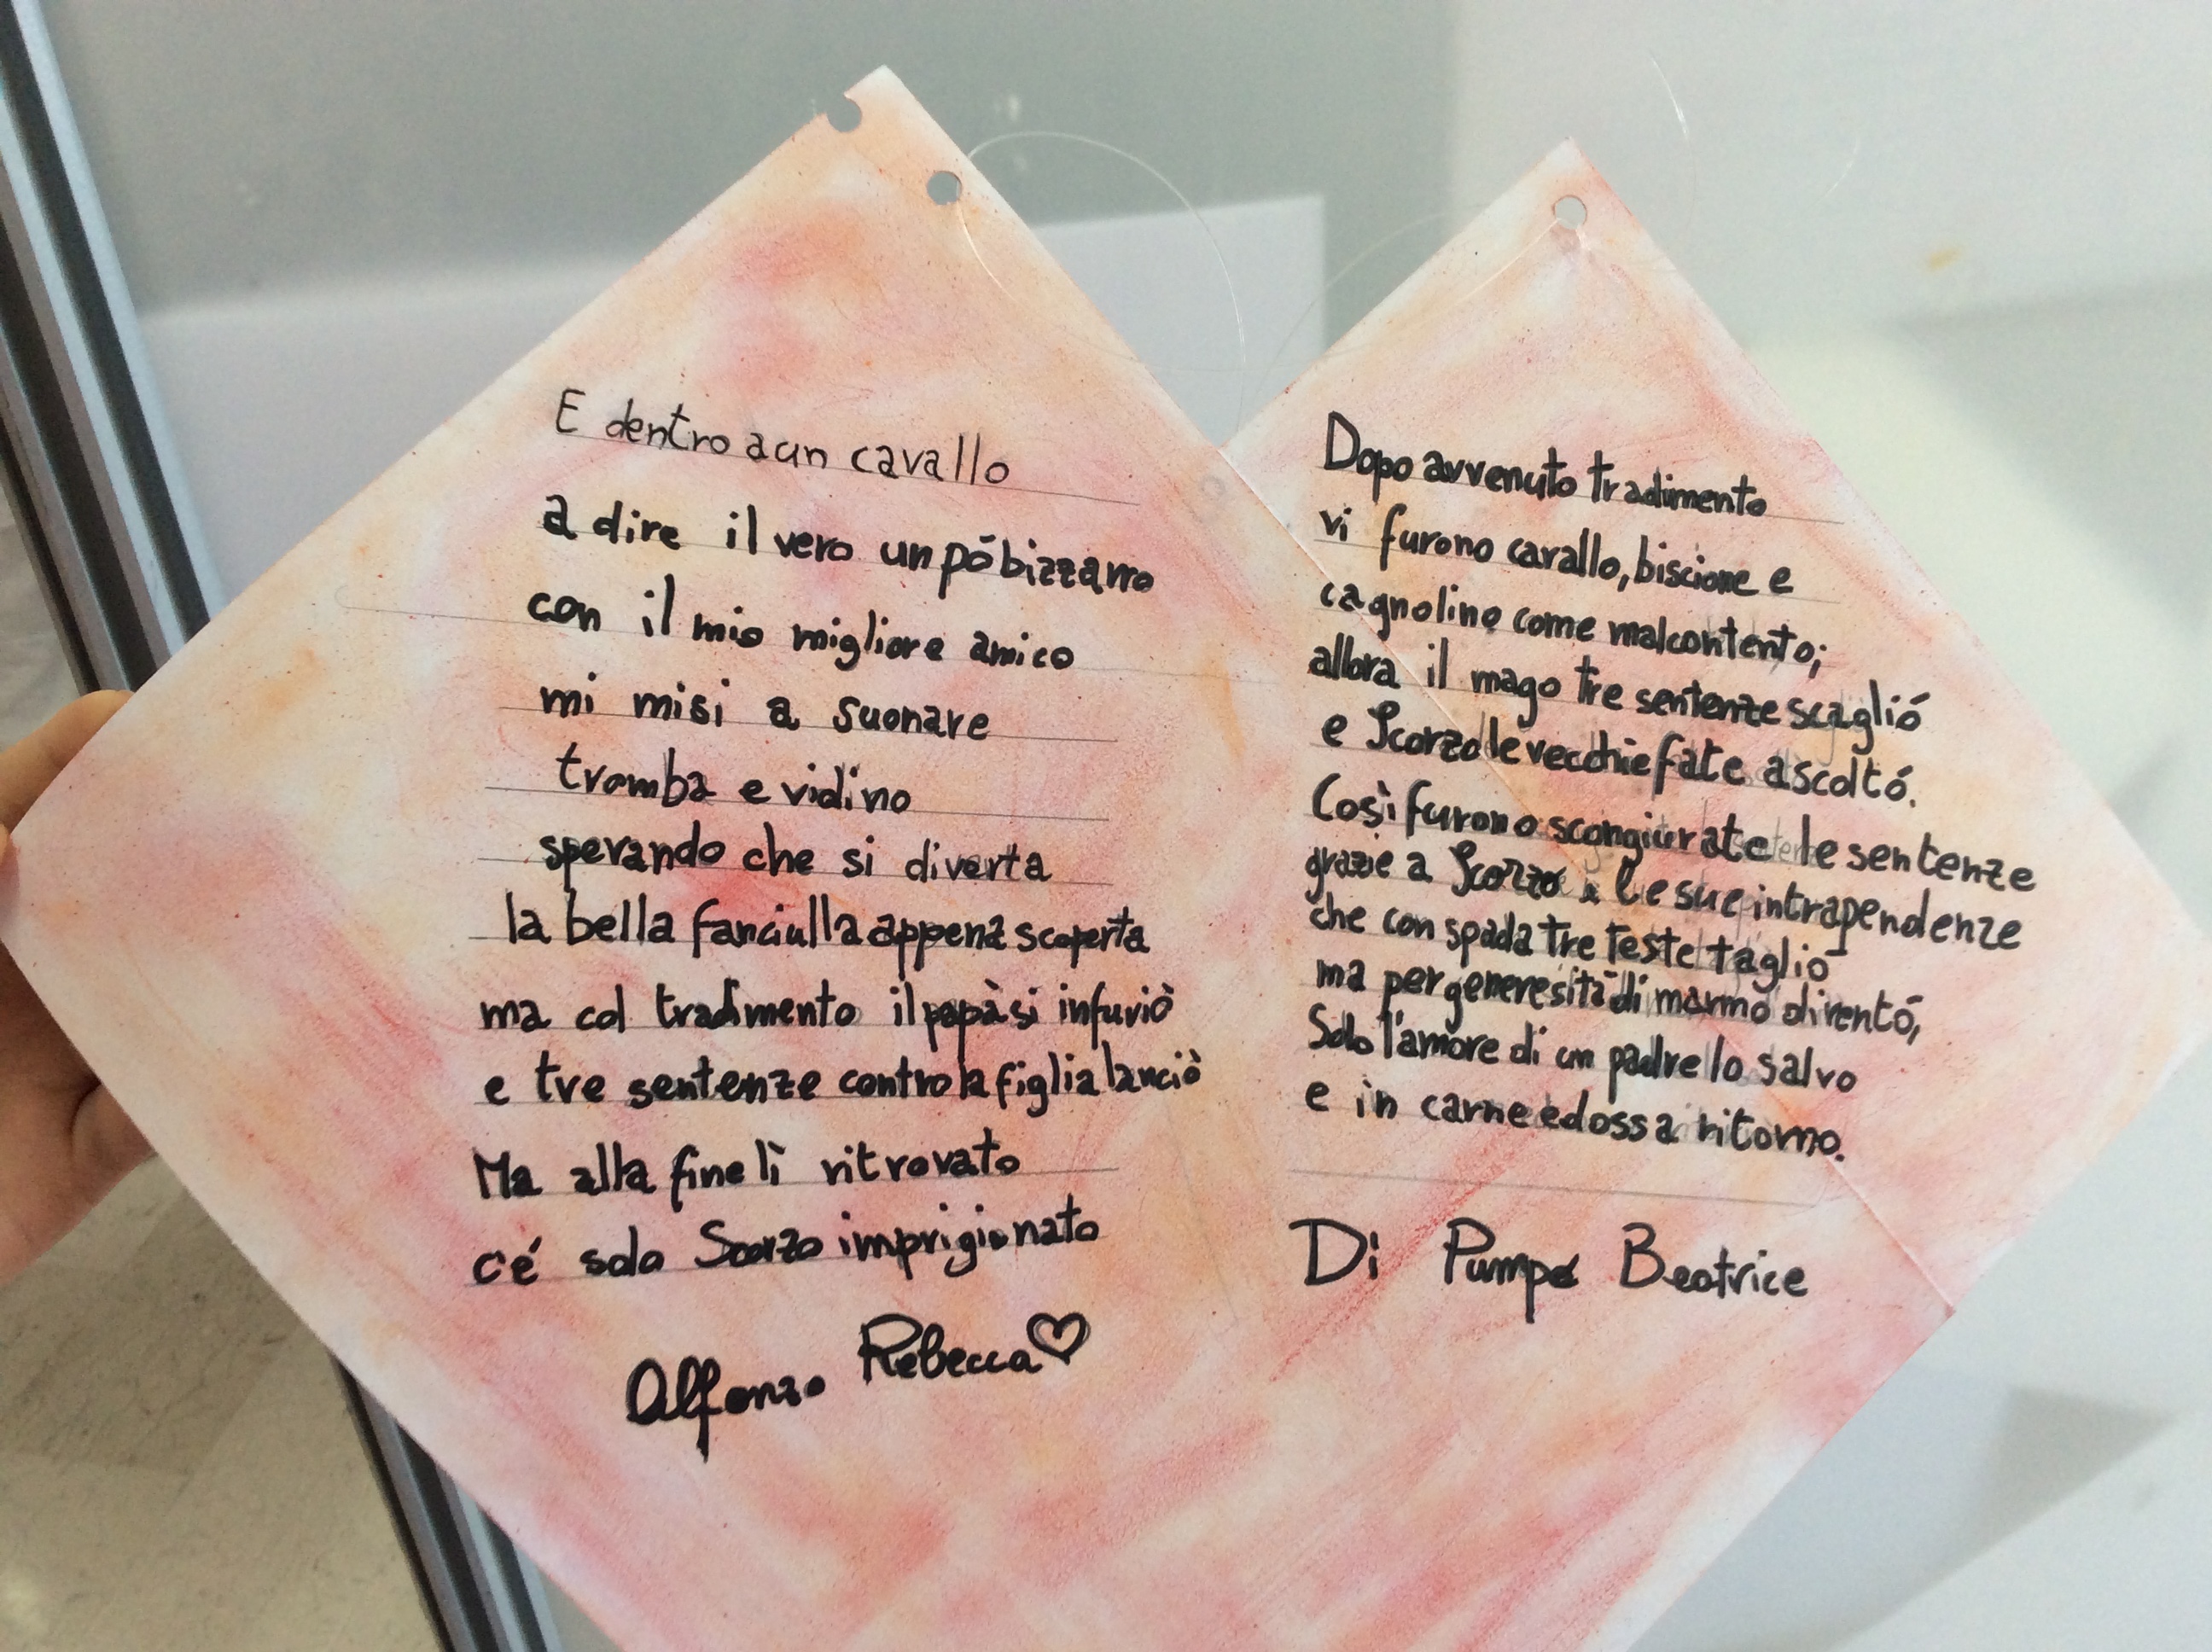 E dentro a un cavallo
a dire il vero un pó bizzarro
con il mio migliore amico
mi misi a suonare
tromba e vidino
sperando che si diverta
la bella fanciulla appena scoperta
ma col tradimento il papà si infuriò
e tre sentenze contro la figlia lanciò
Ma alla fine lì ritrovato
c'é solo Scorzo imprigionato
Alfonzo Rebecca♡
Dopo avvenuto tradimento
vi furono cavallo, biscione e
cagnolino come malcontento;
allora il mago tre sentenze scaglió
e Scorzo le vecchie fate ascoltó.
Così furono scongiurate le sentenze
grazie a Scorzo e le sue intrapendenze
che con spada tre teste taglió
ma per generesità di marmo diventó,
Solo l'amore di un padre lo salvo
e in carne ed ossa ritorno.
Di Pumpo Beatrice